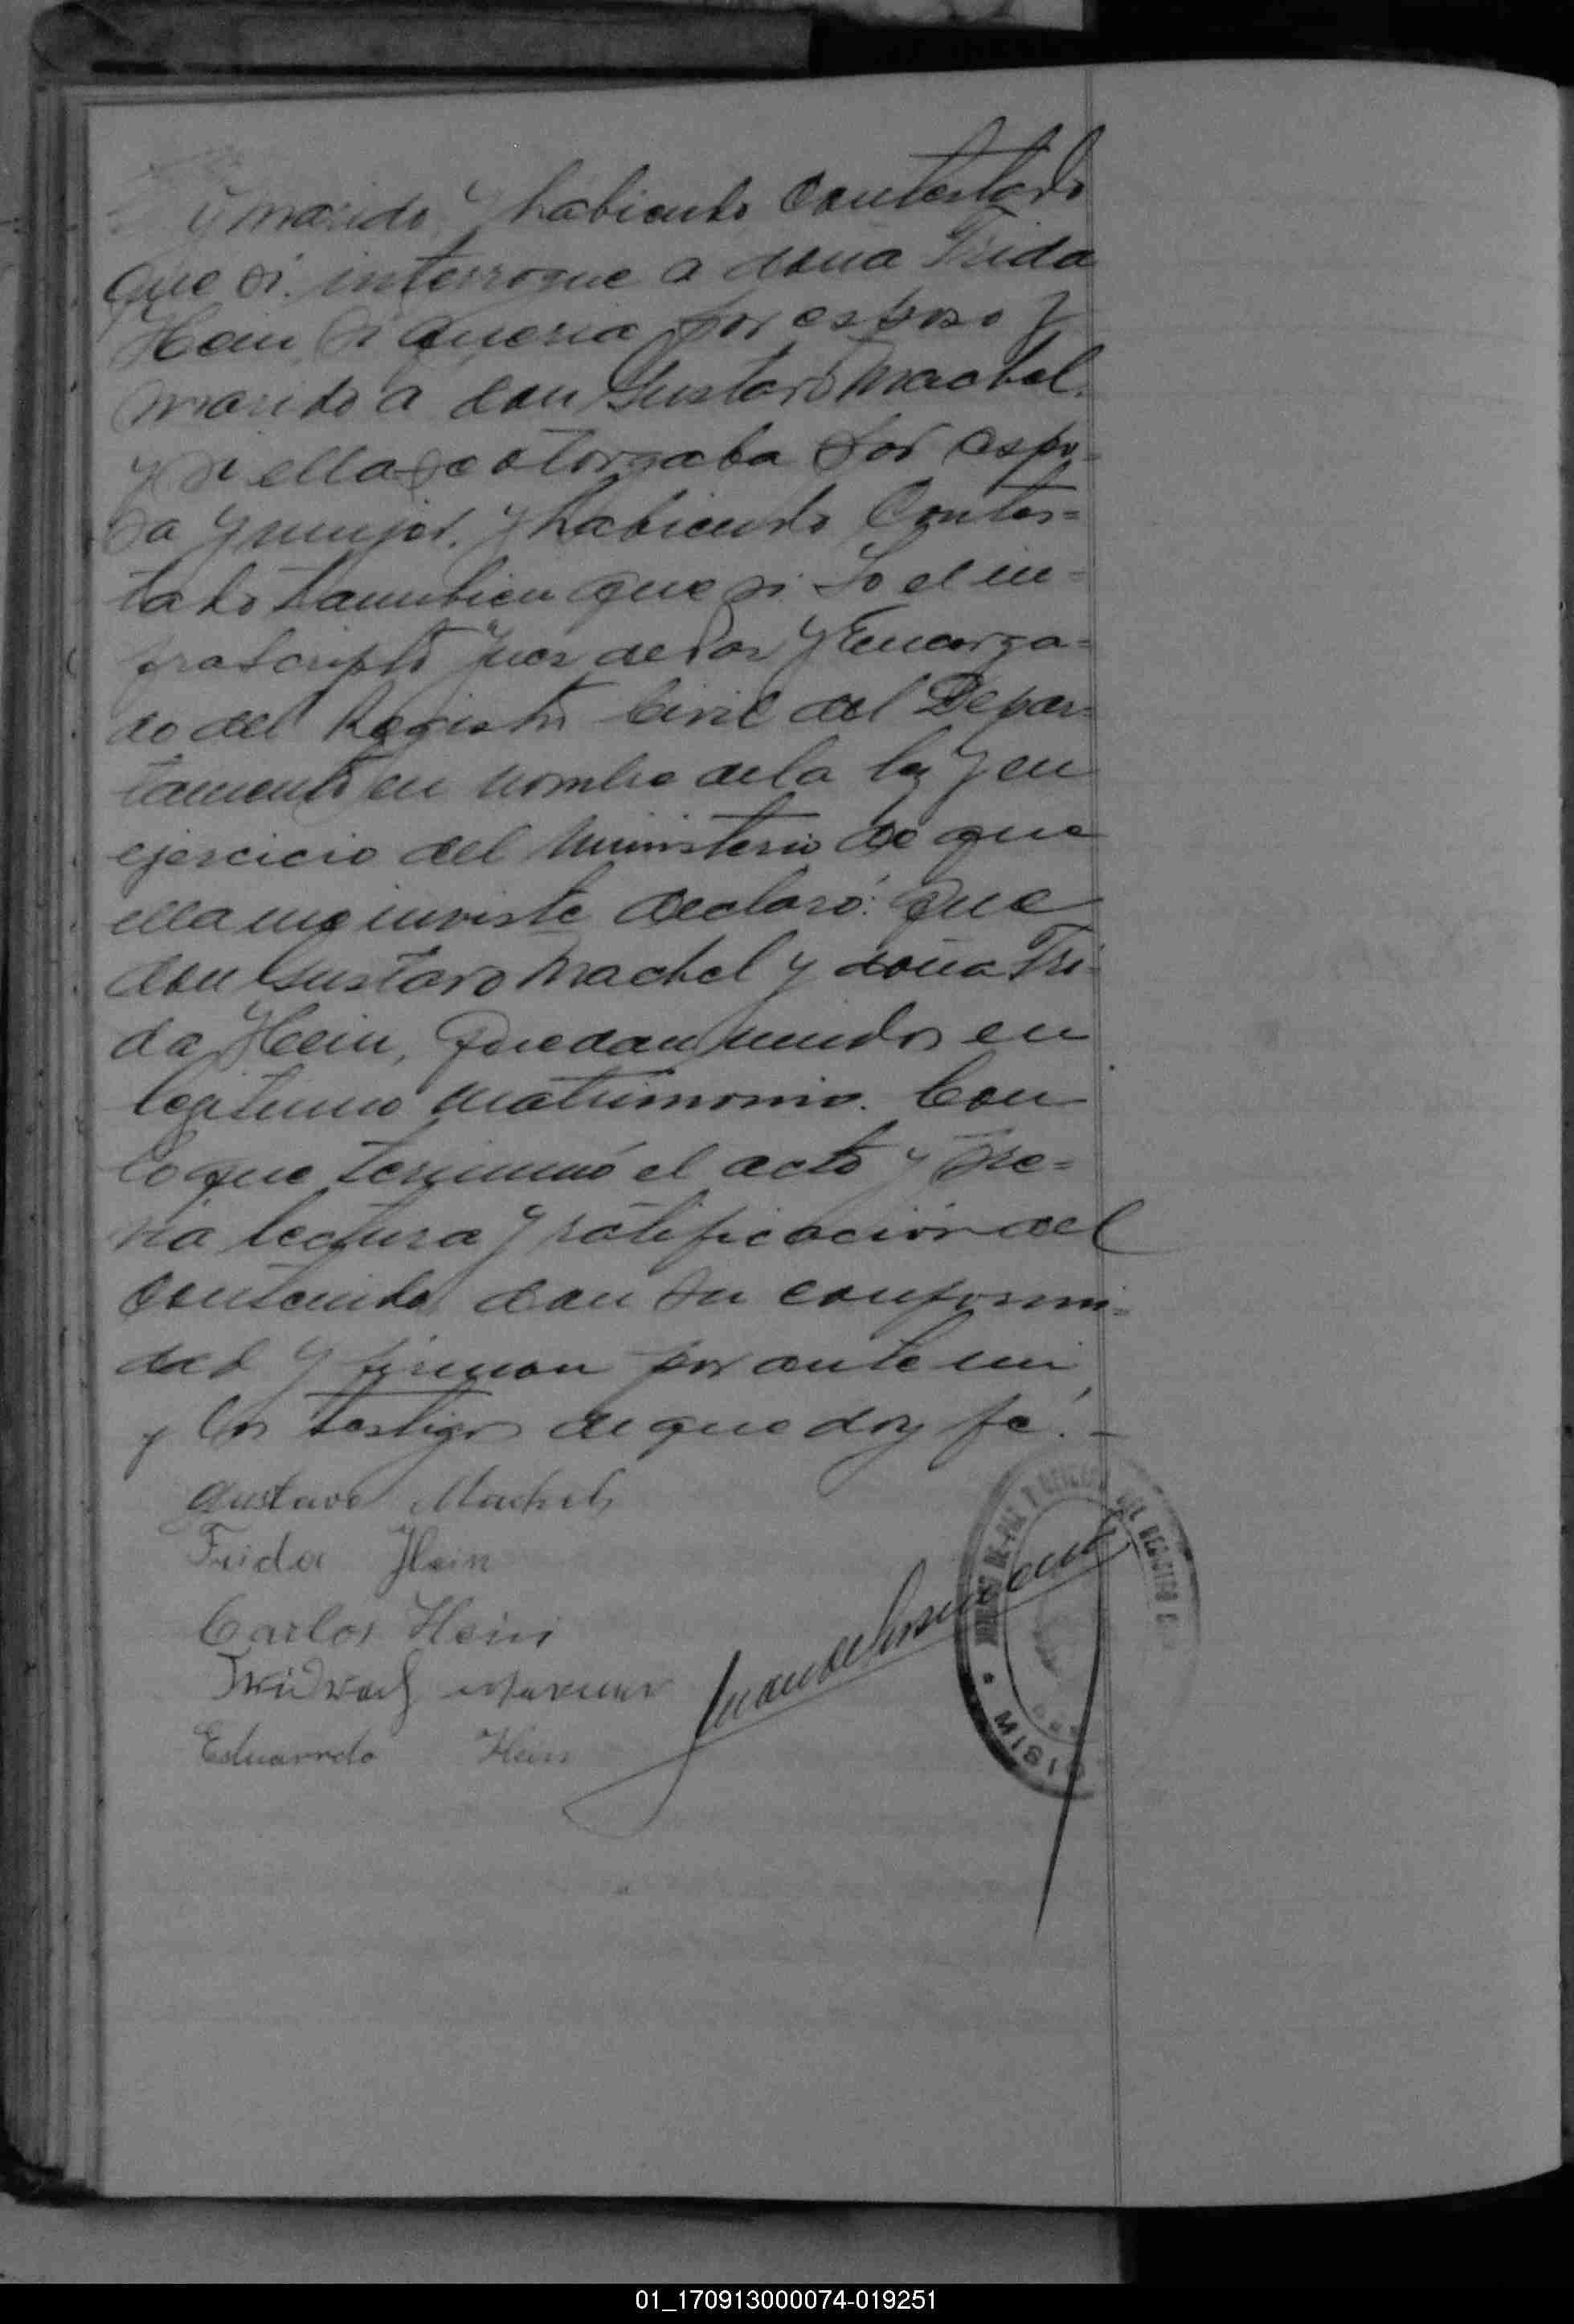 y marido, y habiendo contestado
que si. interrogue a doña Frida
Hein, si queria por esposo y
marido a don Gustavo Machel.
y si ella se otorgaba por espo-
sa y mujer. y habiendo Contes=
tado tambien que si. Yo el in-
frascripto Juez de Paz y Encarga=
do del Registro Civil del Depar=
tamento en nombre de la ley y en
ejercicio del Ministerio de que
ella me inviste declaró: Que
don Gustavo Machel y doña Fri-
da Hein, quedan unidos en
legitimo matrimonio. Con
lo que terminó el acto y pre=
via lectura y ratificación del
contenido dan su conformi=
dad y firman por ante mi,
y los testigos de que doy fé.-
Gustavo
Frida Hein
Carlos Hein
Eduardo Hein
Juan de
DE PAZ Y DEL REGISTRO
MISIO
01_170913000074-019251